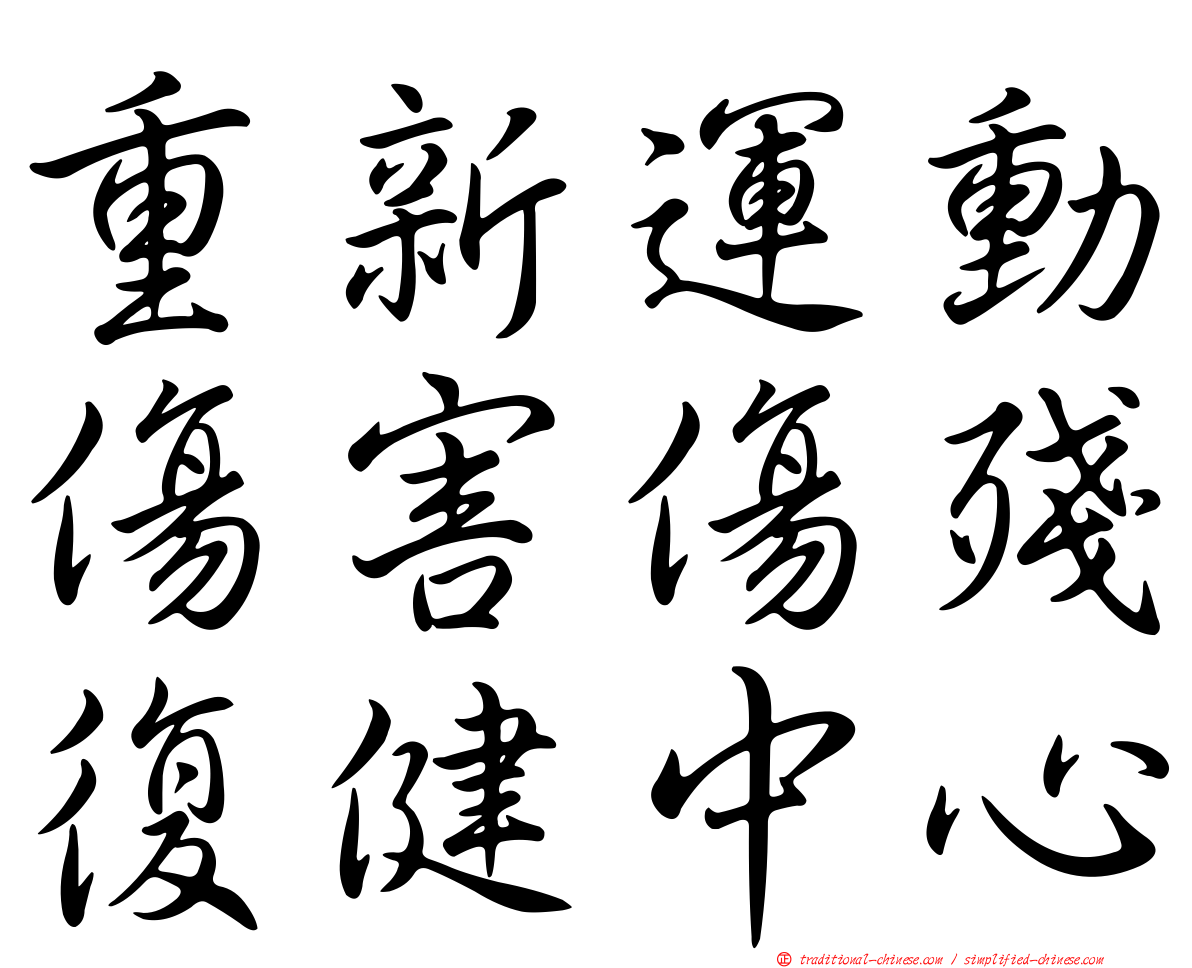 重新運動
傷害傷殘
復健中心
㊣ traditional-chinese.com / simplified-chinese.com